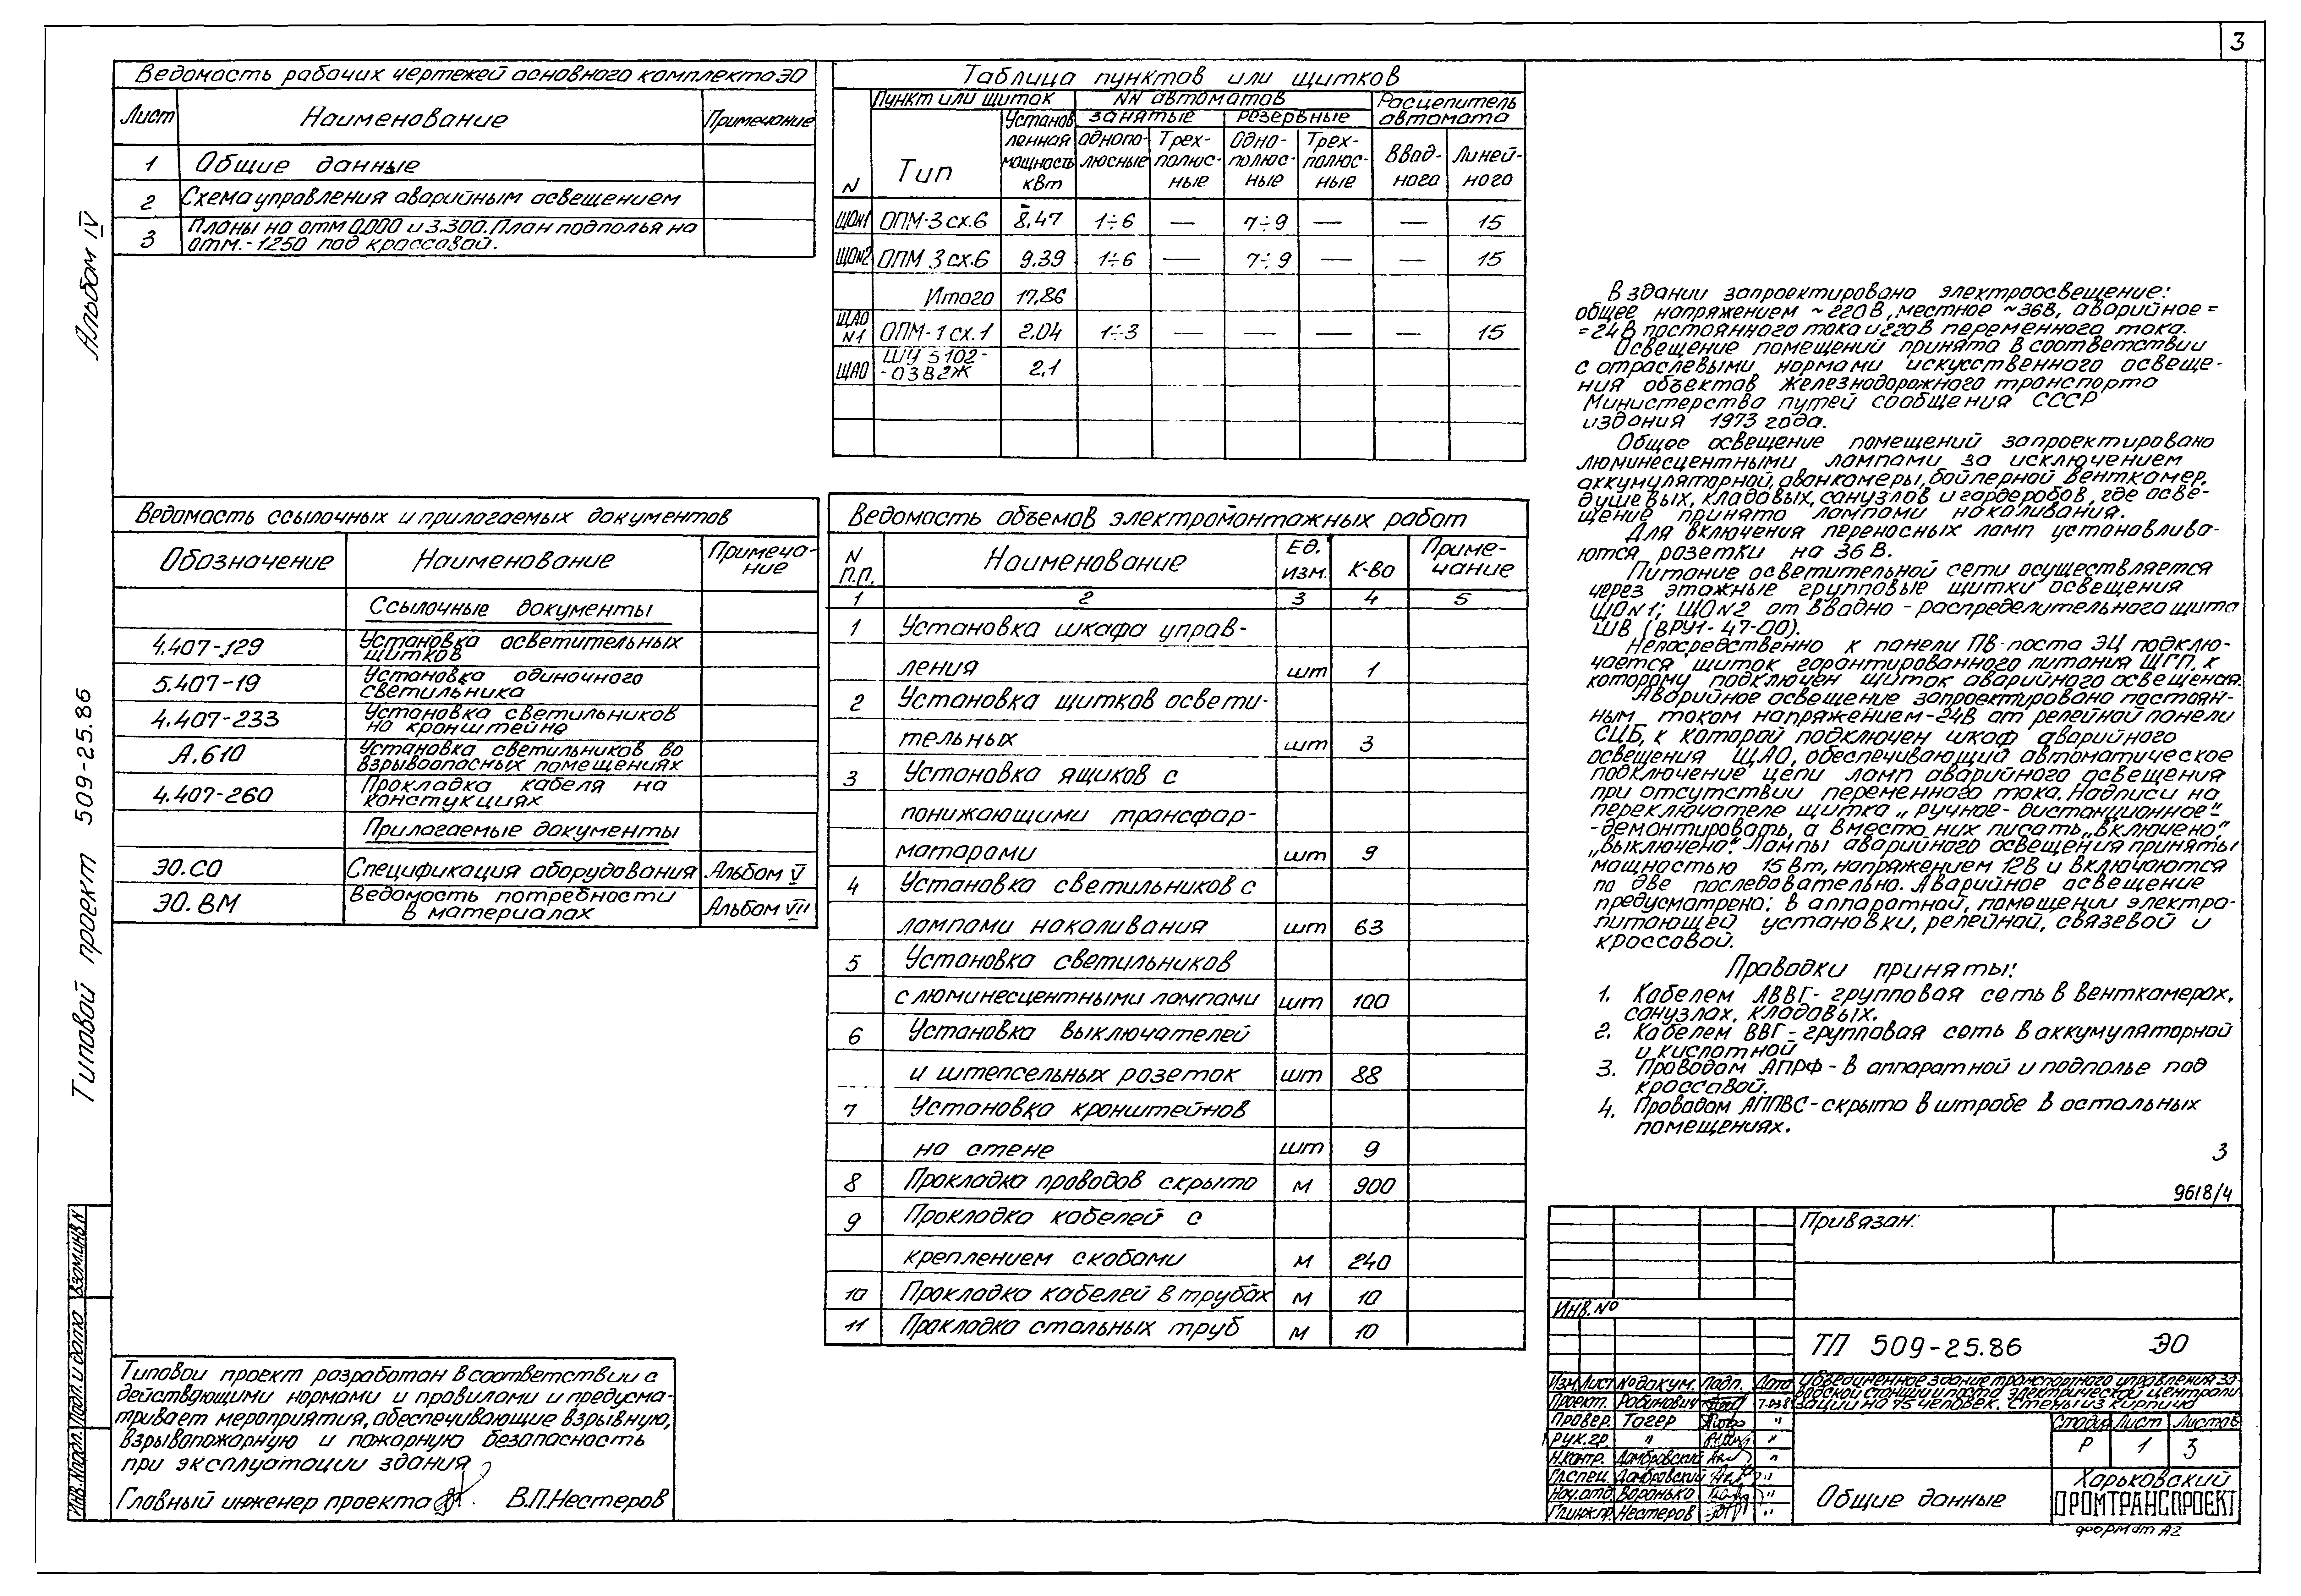 3
Альбом IV
Типовой проект 509-25.86
Ведомость рабочих чертежей основного комплекта ЭО
Лист Наименование Примечание
1 Общие данные
2 Схема управления аварийным освещением
3 Планы на отм 0,000 и 3.300. План подполья на
отм.-1250 под кроссовой.
Таблица пунктов или щитков
Пункт или щиток NN автоматов Расцепитель
автомата
занятые резервные
N Тип Установ
ленная
мощность
кВт
однопо-
люсные
Трех-
полюс-
ные
Одно-
полюс-
ные
Трех-
полюс-
ные
Ввод-
ного
Линей-
ного
ЩОN1 ОПМ-3 сх.6 8,47 1÷6 — 7÷9 — — 15
ЩОN2 ОПМ 3 сх.6 9.39 1÷6 — 7÷9 — — 15
Итого 17,86
ЩАО
N1 ОПМ-1 сх.1 2.04 1÷3 — — — — 15
ЩАО ШУ 5102-
-03В2Ж 2,1
Ведомость ссылочных и прилагаемых документов
Обозначение Наименование Примеча-
ние
Ссылочные документы
4.407-129 Установка осветительных
щитков
5.407-19 Установка одиночного
светильника
4.407-233 Установка светильников
на кронштейне
А.610 Установка светильников во
взрывоопасных помещениях
4.407-260 Прокладка кабеля на
констукциях
Прилагаемые документы
ЭО.СО Спецификация оборудования Альбом V
ЭО.ВМ Ведомость потребности
в материалах Альбом VII
Ведомость объемов электромонтажных работ
N
п.п. Наименование Ед.
изм. К-во Приме-
чание
1 2 3 4 5
1 Установка шкафа управ-
ления шт 1
2 Установка щитков освети-
тельных шт 3
3 Установка ящиков с
понижающими трансфор-
маторами шт 9
4 Установка светильников с
лампами накаливания шт 63
5 Установка светильников
с люминесцентными лампами шт 100
6 Установка выключателей
и штепсельных розеток шт 88
7 Установка кронштейнов
на стене шт 9
8 Прокладка проводов скрыто м 900
9 Прокладка кабелей с
креплением скобами м 240
10 Прокладка кабелей в трубах м 10
11 Прокладка стальных труб м 10
В здании запроектировано электроосвещение:
общее напряжением ~220В, местное ~36В, аварийное =
=24В постоянного тока и 220В переменного тока.
Освещение помещений принято в соответствии
с отраслевыми нормами искусственного освеще-
ния объектов железнодорожного транспорта
Министерства путей сообщения СССР
издания 1973 года.
Общее освещение помещений запроектировано
люминесцентными лампами за исключением
аккумуляторной, аванкамеры, бойлерной венткамер,
душевых, кладовых, санузлов и гардеробов, где осве-
щение принято лампами накаливания.
Для включения переносных ламп устанавлива-
ются розетки на 36 В.
Питание осветительной сети осуществляется
через этажные групповые щитки освещения
ЩОN1; ЩОN2 от вводно-распределительного щита
ШВ (ВРУ1-47-00).
Непосредственно к панели ПВ-поста ЭЦ подклю-
чается щиток гарантированного питания ЩГП, к
которому подключен щиток аварийного освещения.
Аварийное освещение запроектировано постоян-
ным током напряжением-24В от релейной панели
СЦБ, к которой подключен шкаф аварийного
освещения ЩАО, обеспечивающий автоматическое
подключение цепи ламп аварийного освещения
при отсутствии переменного тока. Надписи на
переключателе щитка „ручное-дистанционное"
-демонтировать, а вместо них писать „включено",
„выключено". Лампы аварийного освещения приняты
мощностью 15Вт, напряжением 12В и включаются
по две последовательно. Аварийное освещение
предусмотрено: в аппаратной, помещении электро-
питающей установки, релейной, связевой и
кроссовой.
Проводки приняты:
1. Кабелем АВВГ-групповая сеть в венткамерах,
санузлах, кладовых.
2. Кабелем ВВГ-групповая сеть в аккумуляторной
и кислотной
3. Проводом АПРФ-в аппаратной и подполье под
кроссовой.
4. Проводом АППВС-скрыто в штрабе в остальных
помещениях.
3
9618/4
Привязан:
Инв.№
ТП 509-25.86 ЭО
Изм. Лист № докум. Подп. Дата
Проект. Рабинович
Провер. Тогер "
Рук.гр. " "
Н.контр. Домбровский "
Гл.спец. Домбровский "
Нач.отд Воронько "
Гл.инж.пр. Нестеров "
Объединенное здание транспортного управления за
водской станции и поста электрической централи
зации на 75 человек. Стены из кирпича
Стадия Лист Листов
Р 1 3
Общие данные
Харьковский
ПРОМТРАНСПРОЕКТ
формат А2
Типовой проект разработан в соответствии с
действующими нормами и правилами и предусма-
тривает мероприятия, обеспечивающие взрывную,
взрывопожарную и пожарную безопасность
при эксплуатации здания
Главный инженер проекта В.П.Нестеров
Инв.№подл. Подп. и дата Взам.инв.N